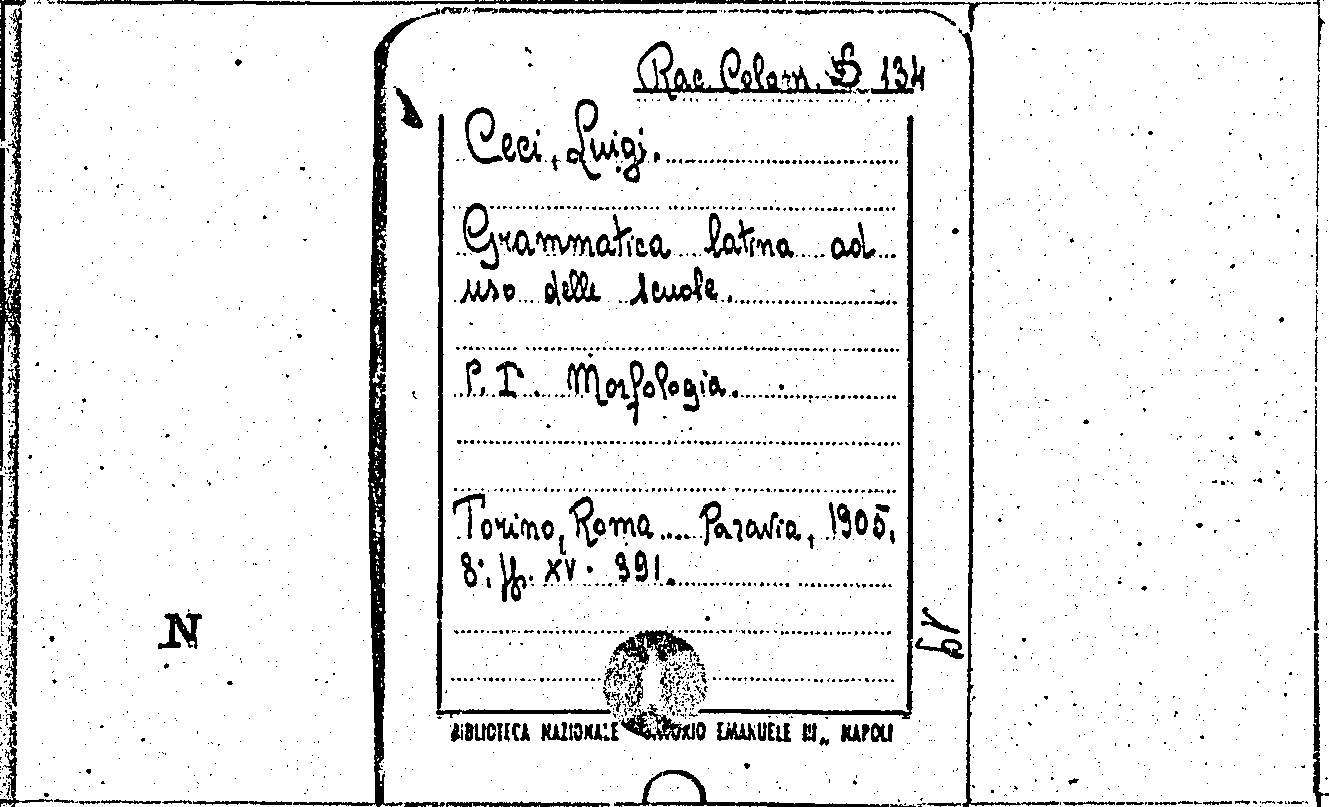 Rac. Colom. S 134
Ceci, Luigi.
Grammatica latina ad
uso delle scuole.
P. I. Morfologia.
Torino, Roma.... Paravia, 1905.
8°. pp. XV. 391.
N
BIBLIOTECA NAZIONALE EMANUELE III„ NAPOLI